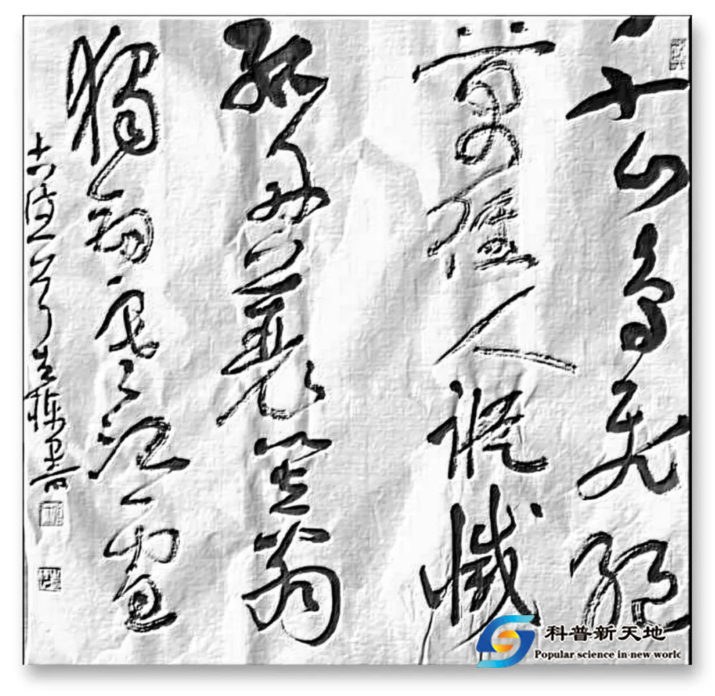 千山鳥飛絕
萬徑人蹤滅
孤舟蓑笠翁
獨釣寒江雪
科普新天地
Popular science in new world